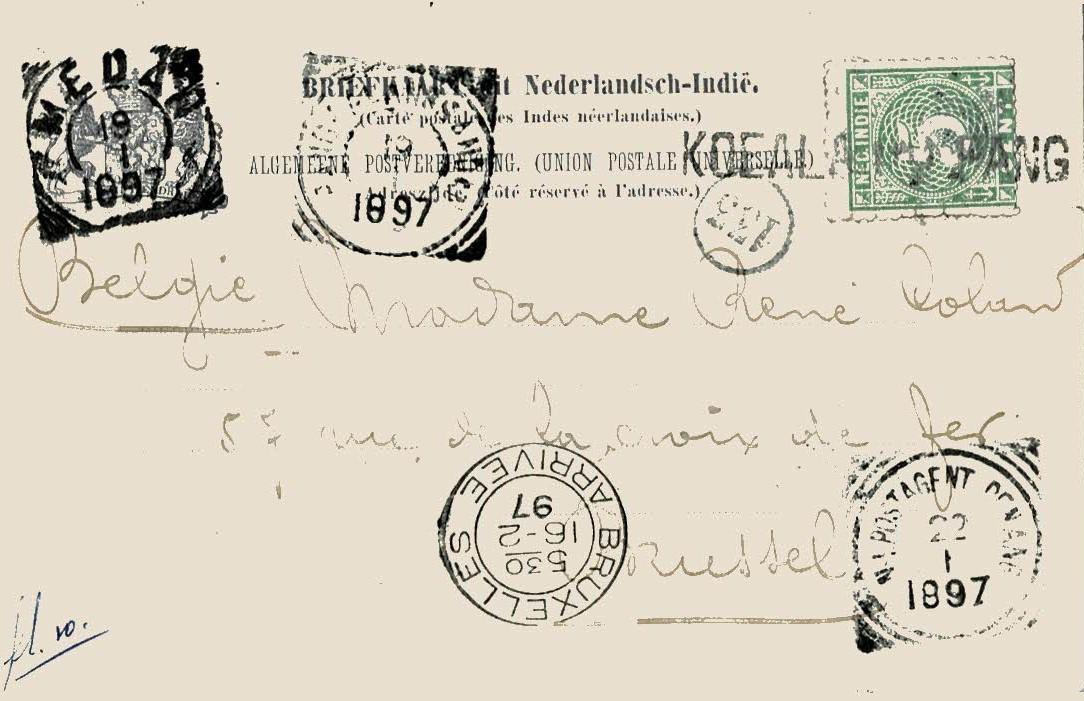 MEDAN
19
1
1897
19
1
1897
BRIEFKAART uit Nederlandsch-Indië.
(Carte postale des Indes néerlandaises.)
ALGEMEENE POSTVEREENIGING. (UNION POSTALE UNIVERSELLE)
Adreszijde. (Côté réservé à l'adresse.)
KOEALA PANG
NED. INDIE
CENT
België Madame René Roland
rue de la croix de fer
Brussel
BRUXELLES ARRIVEE
530
16-2
97
N.I. POSTAGENT PENANG
22
1
1897
fl. 10.